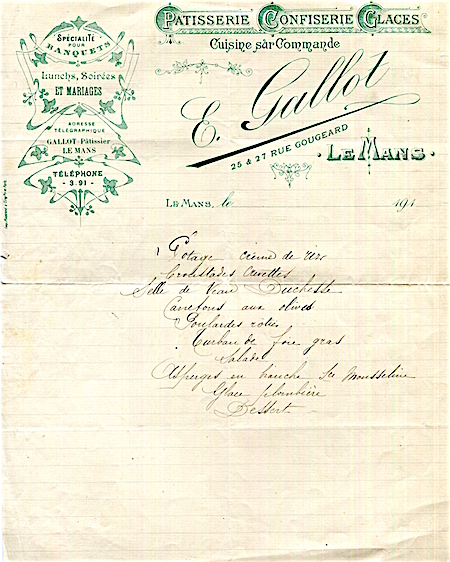 PATISSERIE CONFISERIE GLACES
Cuisine sur Commande
SPÉCIALITÉ
POUR
BANQUETS
Lunchs, Soirées
ET MARIAGES
ADRESSE
TÉLÉGRAPHIQUE
GALLOT-Pâtissier
LE MANS
TÉLÉPHONE
- 3.91 -
E. Gallot
25 & 27 RUE GOUGEARD
LE MANS.
LE MANS, le 191
Potage crème de riz
Croustades Crevettes
Selle de Veau Duchesse
Canetons aux olives
Poulardes roties
Turban de foie gras
Salade
Asperges en branche Sce Mousseline
Glace plombière
Dessert